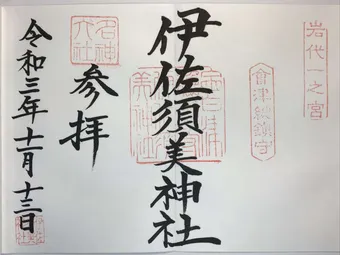 岩代一之宮
會津総鎮守
伊佐須美神社
名神大社
参拝
令和三年十一月十三日